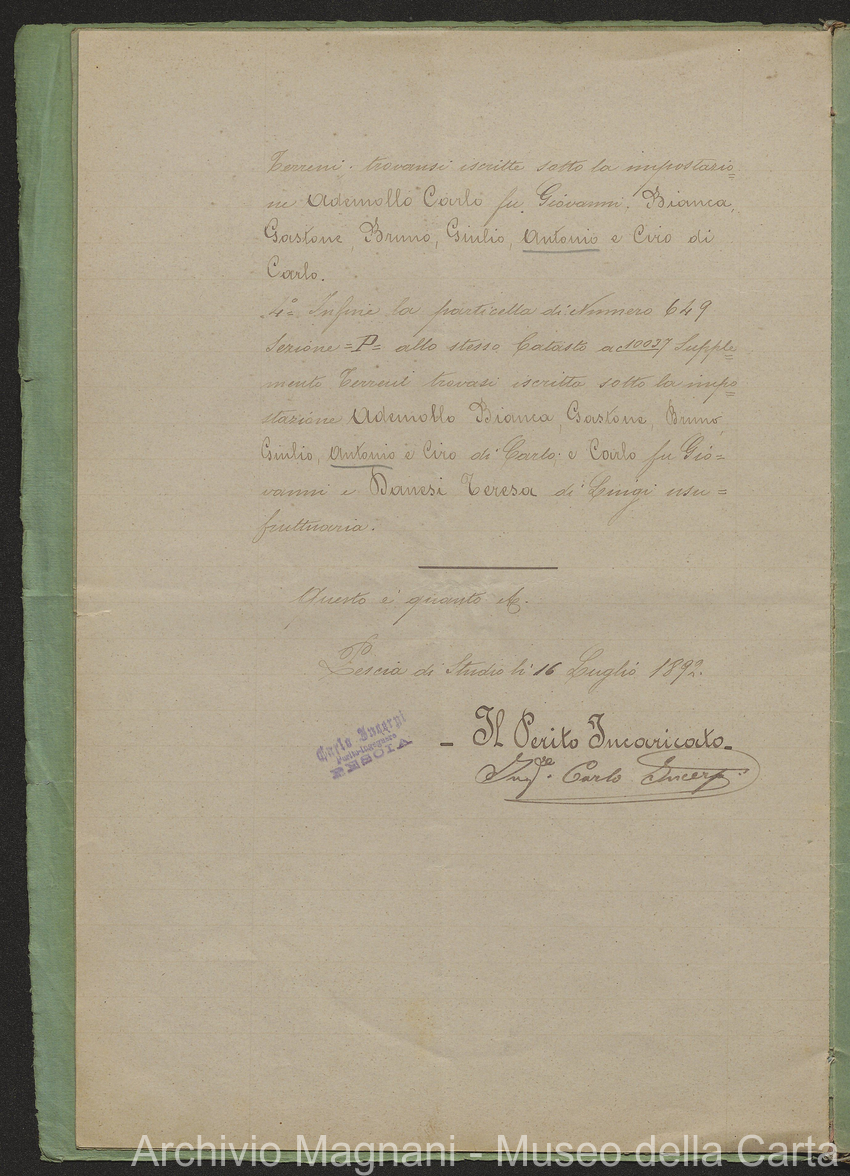 Terreni. trovansi iscritte sotto la impostazio=
ne Ademollo Carlo fu Giovanni. Bianca,
Gastone, Bruno, Giulio, Antonio e Ciro di
Carlo.
4º. Infine la particella di Numero 649
Sezione =P= allo stesso Catasto a c 10027 Supple=
mento Terreni trovasi iscritta sotto la impo=
stazione Ademollo Bianca, Gastone, Bruno,
Giulio, Antonio e Ciro di Carlo: e Carlo fu Gio=
vanni e Danesi Teresa di Luigi usu=
fruttuaria.
Questo è quanto &.
Pescia di Studio li 16 Luglio 1892.
Carlo Incerpi
Perito-Ingegnere
PESCIA
- Il Perito Incaricato -
Ing.re Carlo Incerpi
Archivio Magnani - Museo della Carta